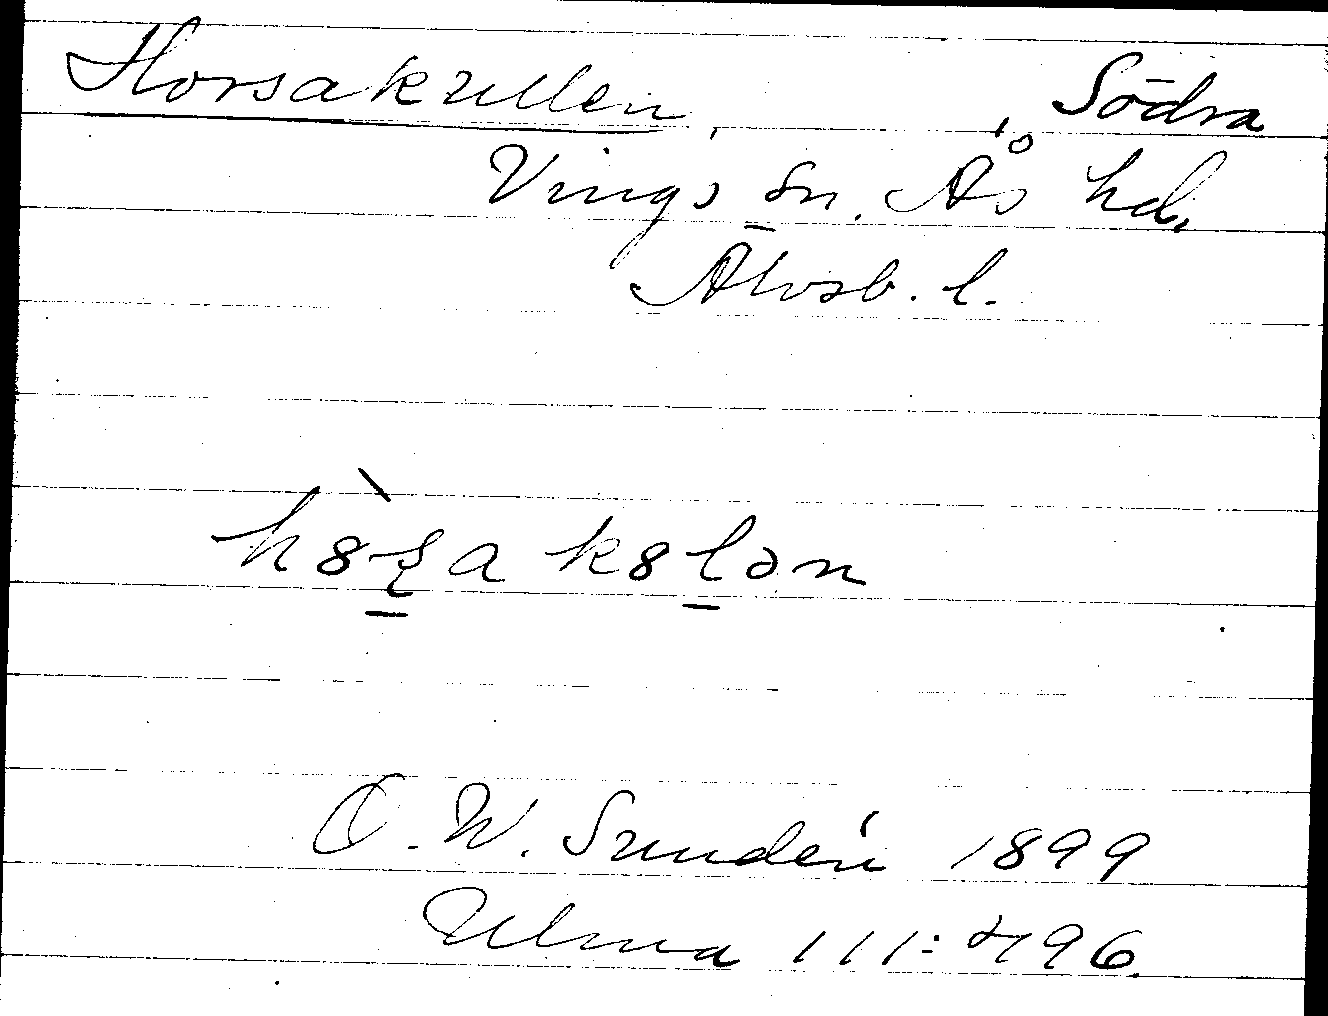 Horsakullen, , Södra
Vings sn. Ås hd.
Älvsb. l.
O. W. Sundén 1899
Ulma 111:496.